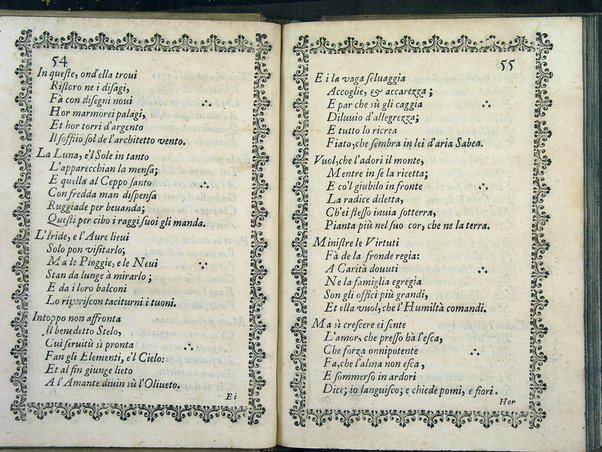 54
In queste, ond'ella troui
Ristoro ne i disagi,
Fà con disegni noui
Hor marmorei palagi,
Et hor torri d'argento
Il soffio sol de l'architetto vento.
La Luna, e'l Sole in tanto
L'apparecchian la mensa;
E quella al Ceppo santo
Con fredda man dispensa
Ruggiade per beuanda;
Questi per cibo i raggi suoi gli manda.
L'Iride, e l'Aure lieui
Solo pon visitarlo;
Ma le Pioggie, e le Neui
Stan da lunge à mirarlo;
E da i loro balconi
Lo riueriscon taciturni i tuoni.
Intoppo non affronta
Il benedetto Stelo,
Cui seruitù sì pronta
Fan gli Elementi, e'l Cielo:
Et al fin giunge lieto
A l'Amante diuin sù l'Oliueto.
Ei
55
E i la vaga seluaggia
Accoglie, & accarezza;
E par che sù gli caggia
Diluuio d'allegrezza;
E tutto lo ricrea
Fiato, che sembra in lei d'aria Sabea.
Vuol, che l'adori il monte,
Mentre in se la ricetta;
E co'l giubilo in fronte
La radice diletta,
Ch'ei stesso inuia sotterra,
Pianta più nel suo cor, che ne la terra.
Ministre le Virtuti
Fà de la fronde regia:
A Carità douuti
Ne la famiglia egregia
Son gli offici più grandi,
Et ella vuol, che l'Humiltà comandi.
Ma sì crescere ei sente
L'amor, che presso hà l'esca,
Che forza onnipotente
Fa, che l'alma non esca,
E sommerso in ardori
Dice; io languisco; e chiede pomi, e fiori.
Hor